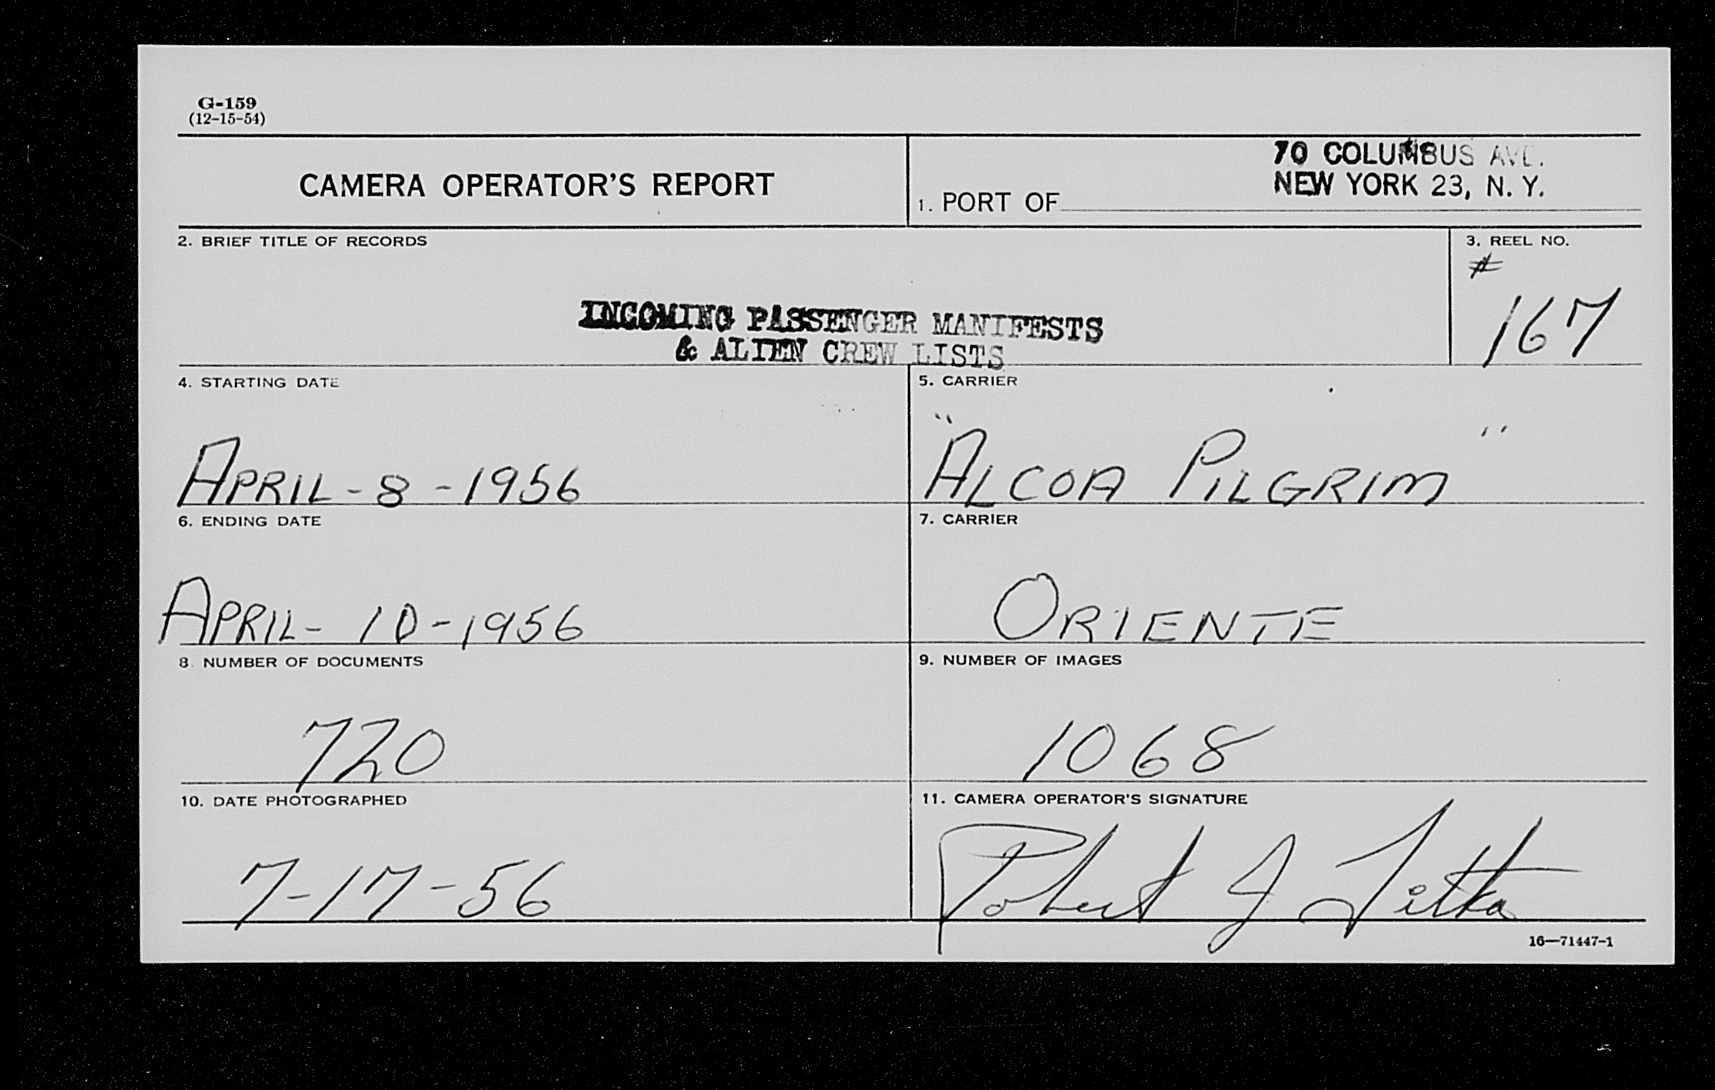 G-159
(12-15-54)
CAMERA OPERATOR'S REPORT
70 COLUMBUS AVE.
NEW YORK 23, N. Y.
1. PORT OF
2. BRIEF TITLE OF RECORDS
INCOMING PASSENGER MANIFESTS
& ALIEN CREW LISTS
3. REEL NO.
#
167
4. STARTING DATE
APRIL-8-1956
5. CARRIER
"ALCOA PILGRIM"
6. ENDING DATE
APRIL-10-1956
7. CARRIER
ORIENTE
8. NUMBER OF DOCUMENTS
720
9. NUMBER OF IMAGES
1068
10. DATE PHOTOGRAPHED
7-17-56
11. CAMERA OPERATOR'S SIGNATURE
Robert J
16—71447-1